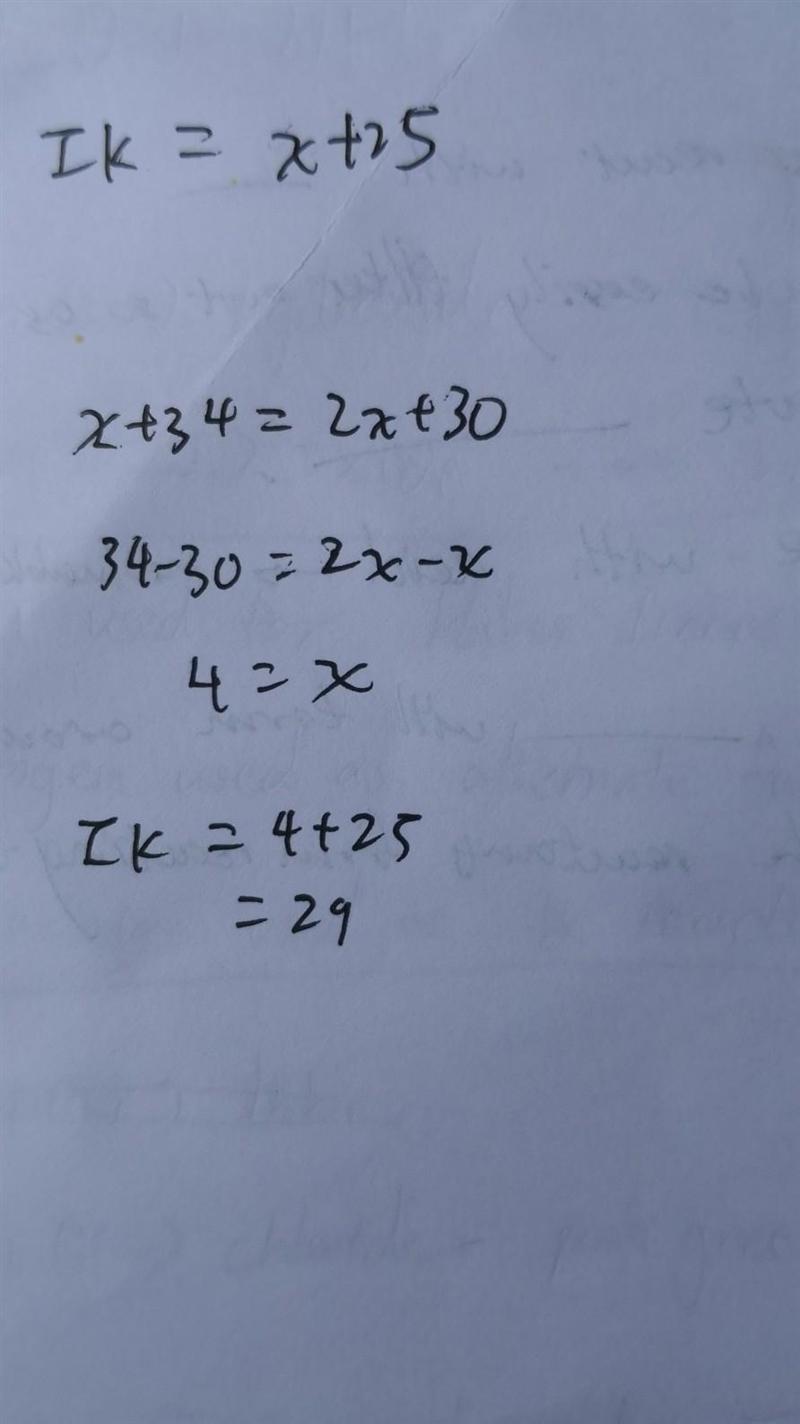 IK = x+25
x+34 = 2x+30
34-30 = 2x-x
4 = x
IK = 4+25
= 29